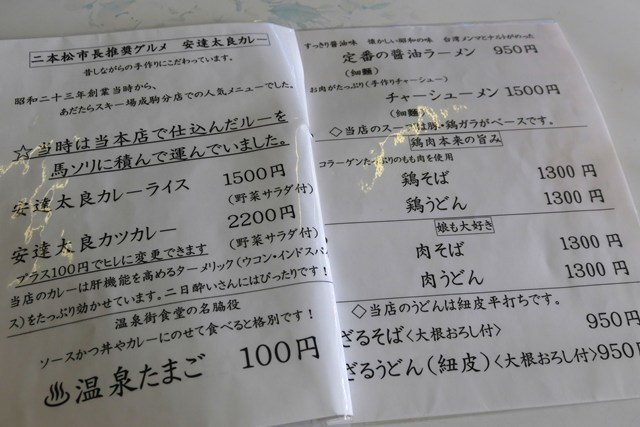 二本松市長推奨グルメ　安達太良カレー
昔しながらの手作りにこだわっています。
昭和二十三年創業当時から、
あだたらスキー場成駒分店での人気メニューでした。
☆当時は当本店で仕込んだルーを
馬ソリに積んで運んでいました。
安達太良カレーライス　1500円
(野菜サラダ付)
安達太良カツカレー　2200円
(野菜サラダ付)
プラス100円でヒレに変更できます
当店のカレーは肝機能を高めるターメリック(ウコン・インドスパ
ス)をたっぷり効かせています。二日酔いさんにはぴったりです！
温泉街食堂の名脇役
ソースかつ丼やカレーにのせて食べると格別です！
♨温泉たまご　100円
すっきり醤油味　懐かしい昭和の味　台湾メンマとナルトがのった
定番の醤油ラーメン　950円
(細麺)
お肉がたっぷり(手作りチャーシュー)
チャーシューメン　1500円
(細麺)
◇当店のスープは豚・鶏ガラがベースです。
鶏肉本来の旨み
コラーゲンたっぷりのもも肉を使用
鶏そば　1300円
鶏うどん　1300円
娘も大好き
肉そば　1300円
肉うどん　1300円
◇当店のうどんは紐皮平打ちです。
ざるそば〈大根おろし付〉　950円
ざるうどん(紐皮)〈大根おろし付〉950円